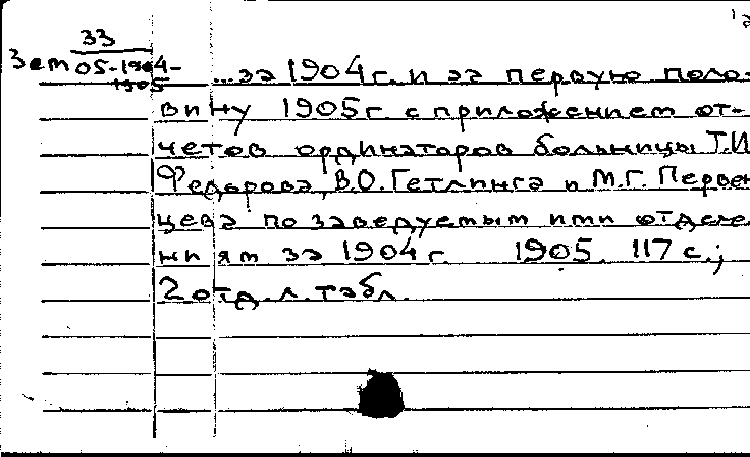 33
Зем 05-1904-
1905
...за 1904 г. и за первую поло-
вину 1905 г. с приложением от-
четов ординаторов больницы Т.И.
Федорова, В.О. Гетлинга и М.Г. Первен-
цева по заведуемым ими отделе-
ниям за 1904 г. 1905. 117 с.;
2 отд. л. табл.